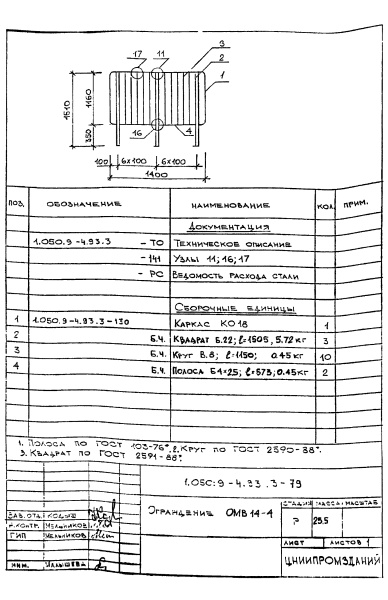 17 11 3
2
1
1510
1160
350
16 4
100 6x100 6x100
1400
ПОЗ. ОБОЗНАЧЕНИЕ НАИМЕНОВАНИЕ КОЛ. ПРИМ.
ДОКУМЕНТАЦИЯ
1.050.9-4.93.3 - ТО ТЕХНИЧЕСКОЕ ОПИСАНИЕ
- 141 УЗЛЫ 11;16;17
- РС ВЕДОМОСТЬ РАСХОДА СТАЛИ
СБОРОЧНЫЕ ЕДИНИЦЫ
1 1.050.9-4.93.3-130 КАРКАС КО18 1
2 Б.Ч. КВАДРАТ Б.22; ℓ=1505, 5.72 КГ 3
3 Б.Ч. КРУГ В.8; ℓ=1150; 0.45 КГ 10
4 Б.Ч. ПОЛОСА Б4×25; ℓ=573; 0.45 КГ 2
1. ПОЛОСА ПО ГОСТ 103-76*. 2. КРУГ ПО ГОСТ 2590-88*.
3. КВАДРАТ ПО ГОСТ 2591-88*.
1.050.9-4.93.3-79
ОГРАЖДЕНИЕ ОМВ 14-4
СТАДИЯ МАССА МАСШТАБ
Р 29.5
ЗАВ.ОТД. КОДЫШ
Н.КОНТР. МЕЛЬНИКОВ
ГИП МЕЛЬНИКОВ
ЛИСТ ЛИСТОВ 1
ЦНИИПРОМЗДАНИЙ
ИНЖ. МАЛЫШЕВА